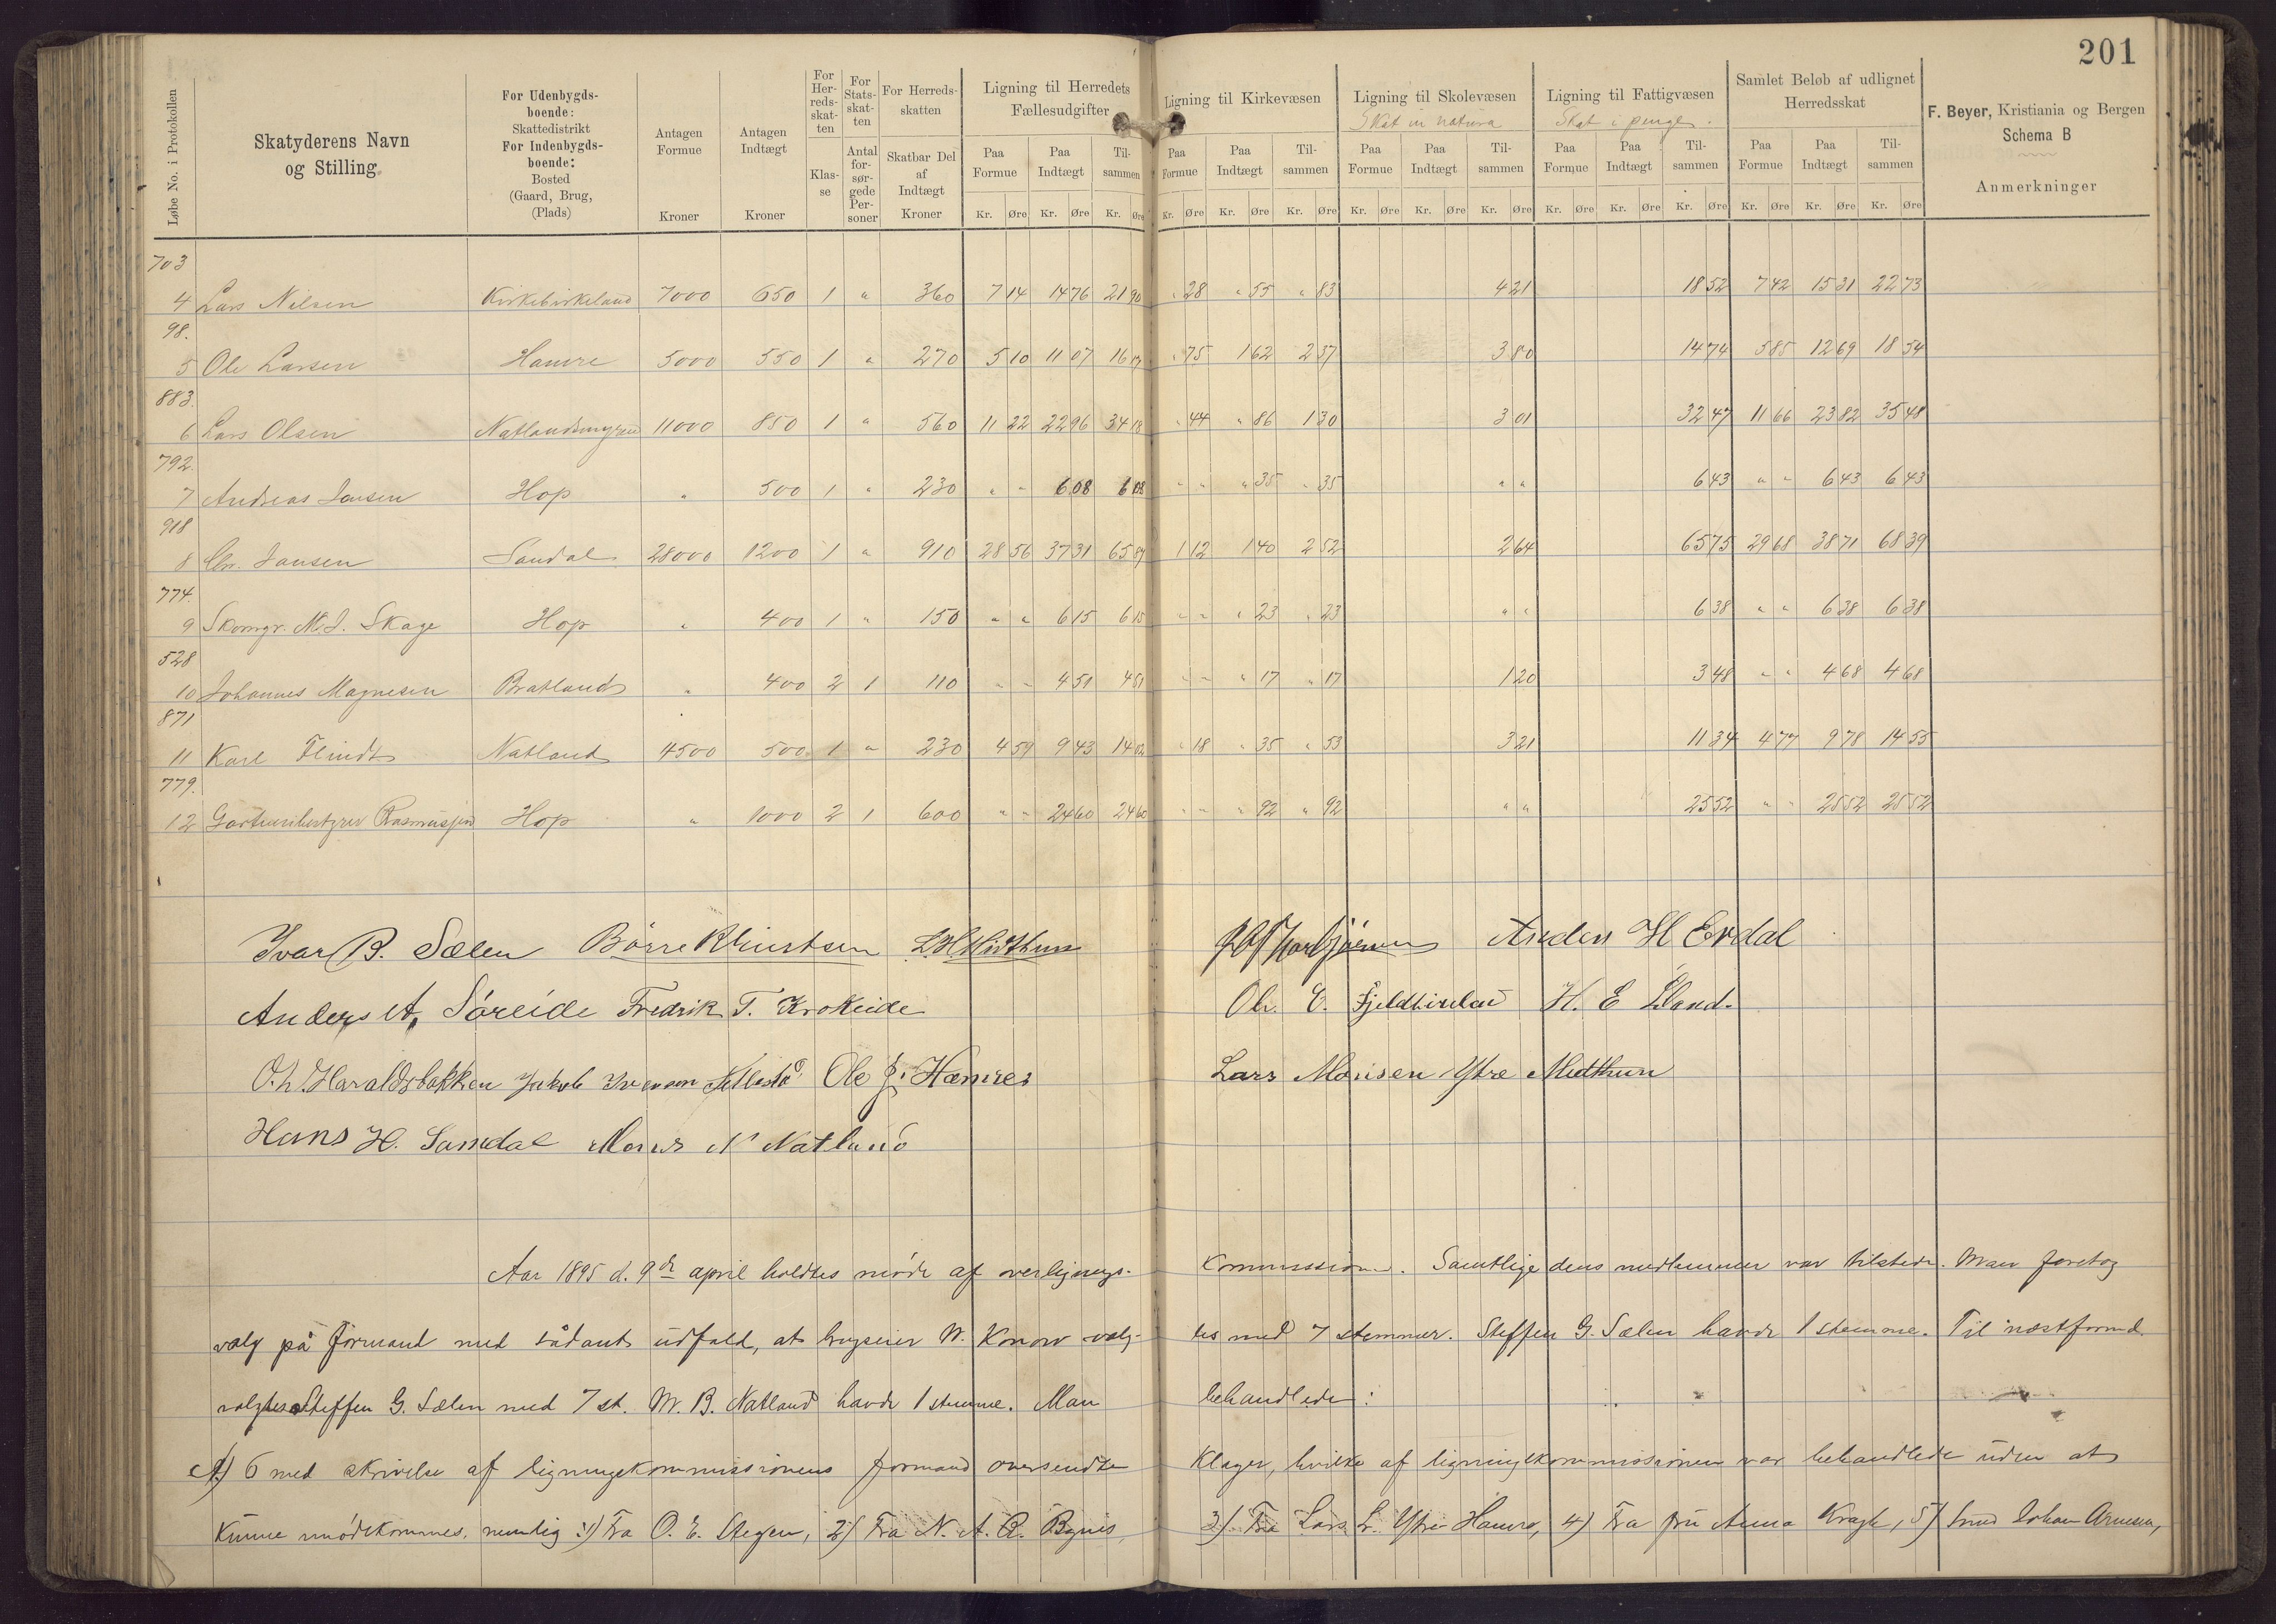 201
Løbe No. i Protokollen
Skatyderens Navn og Stilling.
For Udenbygds-boende: Skattedistrikt For Indenbygds-boende: Bosted (Gaard, Brug, (Plads)
Antagen Formue Kroner
Antagen Indtægt Kroner
For Her-reds-skat-ten Klas-se
For Stats-skat-ten Antal for-sør-gede Per-soner
For Herreds-skatten Skatbar Del af Indtægt Kroner
Ligning til Herredets Fællesudgifter
Paa Formue Paa Indtægt Til-sammen
Kr. Øre Kr. Øre Kr. Øre
Ligning til Kirkevæsen
Paa Formue Paa Indtægt Til-sammen
Kr. Øre Kr. Øre Kr. Øre
Ligning til Skolevæsen
Skat in natura
Paa Formue Paa Indtægt Til-sammen
Kr. Øre Kr. Øre Kr. Øre
Ligning til Fattigvæsen
Skat i penge.
Paa Formue Paa Indtægt Til-sammen
Kr. Øre Kr. Øre Kr. Øre
Samlet Beløb af udlignet Herredsskat
Paa Formue Paa Indtægt Til-sammen
Kr. Øre Kr. Øre Kr. Øre
F. Beyer, Kristiania og Bergen
Schema B
Anmerkninger
703
4 Lars Nilsen Kirkebirkeland 7000 650 1 " 360 7 14 14 76 21 90 " 28 " 55 " 83 4 21 18 52 7 42 15 31 22 73
98.
5 Ole Larsen Hamre 5000 550 1 " 270 5 10 11 07 16 17 " 75 1 62 2 37 3 80 14 74 5 85 12 69 18 54
883.
6 Lars Olsen Natlandsmyren 11000 850 1 " 560 11 22 22 96 34 18 " 44 " 86 1 30 3 01 32 47 11 66 23 82 35 48
792.
7 Andreas Jansen Hop " 500 1 " 230 " " 6 08 6 08 " " " 35 " 35 " " 6 43 " " 6 43 6 43
918
8 Chr. Jansen Sandal 28000 1200 1 " 910 28 56 37 31 65 87 1 12 1 40 2 52 2 64 65 75 29 68 38 71 68 39
774.
9 Skomgr. M. J. Skage Hop " 400 1 " 150 " " 6 15 6 15 " " " 23 " 23 " " 6 38 " " 6 38 6 38
528
10 Johannes Magnesen Bratland " 400 2 1 110 " " 4 51 4 51 " " " 17 " 17 1 20 3 48 " " 4 68 4 68
871
11 Karl Flindt Natland 4500 500 1 " 230 4 59 9 43 14 02 " 18 " 35 " 53 3 21 11 34 4 77 9 78 14 55
779.
12 Gartnerbestyrer Rasmussen Hop " 1000 2 1 600 " " 24 60 24 60 " " " 92 " 92 " " 25 52 " " 25 52 25 52
Ivar B. Sælen Børre Knutsen L. H. Midthun Anders H Erdal
Anders A. Søreide Fredrik T. Krokeide Ole E. Fjeldbirkeland H. E Øland
O. L. Haraldsbakken Jakob Iversen Ole J. Hamre Lars Monsen Ytre Midthun
Hans H. Sandal Mons N Natland
Aar 1895 d. 9de april holdtes møde af overligningskommissionen. Samtlige dens medlemmer var tilstede. Man foretog
valg på formand med sådant udfald, at brugseier W. Konow valgtes med 7 stemmer. Steffen G. Sælen havde 1 stemme. Til næstformd.
valgtes Steffen G. Sælen med 7 st. M. B. Natland havde 1 stemme. Man behandlede:
A) 6 med skrivelse af ligningskommissionens formand oversendte Klager, hvilke af ligningskommissionen var behandlede uden at
kunne imødekommes, nemlig: 1) Fra O. E. Stegen, 2) Fra N. A. R. Bynis, 3) Fra Lars L. Ytre Hamre, 4) Fra fru Anna Kragh, 5) Smed Johan Arnesen,